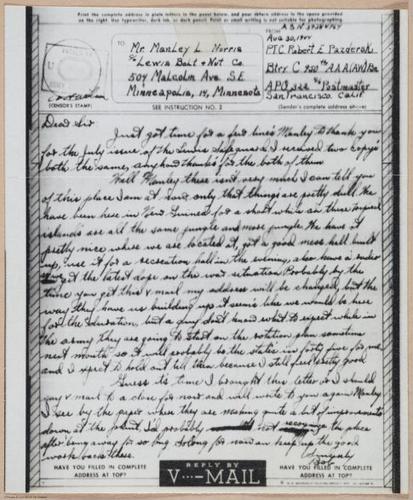 Print the complete address in plain letters in the panel below, and your return address in the space provided on the right. Use typewriter, dark ink, or dark pencil. Faint or small writing is not suitable for photographing.
TO
Mr. Manley L. Norris
℅ Lewis Bolt & Nut Co.
504 Malcolm Ave S.E.
Minneapolis, 14, Minnesota
FROM
Aug 30, 1944
PFC. Robert E.
Btry C 950th AAA (AW) Bn
A.P.O. 322 ℅ Postmaster
San Francisco, Calif
(CENSOR'S STAMP)
SEE INSTRUCTION NO. 2
(Sender's complete address above)
Dear Sir
Just got time for a few lines Manley to thank you
for the July issue of the Lewis Safeguard. I received two copys
both the same, anyhow thanks for the both of them
Well Manley there isn't very much I can tell you
of this place I am at now only that things are pretty dull. We
have been here in New Guinea for a short while an these tropical
islands are all the same jungle and more jungle. We have it
pretty nice where we are located at, got a good mess hall built
up, use it for a recreation hall in the evening, also have a radio
get the latest dope on the war situation. Probably by the
time you get this v mail my address will be changed, but the
way they have us building up it seems like we would be here
for the duration, but a guy don't know what to expect while in
the army they are going to start on the rotation plan sometime
next month so it will probably be the states in forty five for me
and I expect to hold out till then because I still feel pretty good
Guess its time I brought this letter or I should
say v mail to a close for now and will write to you again Manley
I see by the paper where they are making quite a bit of improvements
down at the plant. I'd probably not recognize the place
after being away for so long. So long for now an keep up the good
work back there.
Sincerely
Bob
HAVE YOU FILLED IN COMPLETE
ADDRESS AT TOP?
REPLY BY
V···—MAIL
HAVE YOU FILLED IN COMPLETE
ADDRESS AT TOP?